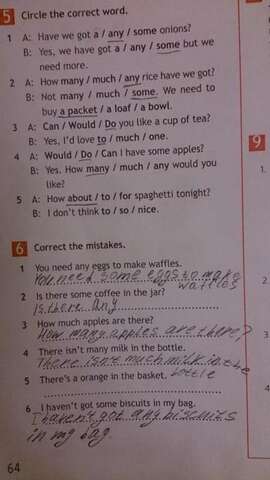 5 Circle the correct word.
1 A: Have we got a / any / some onions?
B: Yes, we have got a / any / some but we
need more.
2 A: How many / much / any rice have we got?
B: Not many / much / some. We need to
buy a packet / a loaf / a bowl.
3 A: Can / Would / Do you like a cup of tea?
B: Yes, I'd love to / much / one.
4 A: Would / Do / Can I have some apples?
B: Yes. How many / much / any would you
like?
5 A: How about / to / for spaghetti tonight?
B: I don't think to / so / nice.
6 Correct the mistakes.
1 You need any eggs to make waffles.
You need some eggs to make
waffles
2 Is there some coffee in the jar?
Is there any
3 How much apples are there?
How many apples are there?
4 There isn't many milk in the bottle.
There isn't much milk in the
bottle
5 There's a orange in the basket.
6 I haven't got some biscuits in my bag.
I haven't got any biscuits
in my bag.
64
9
1.
2
3
4